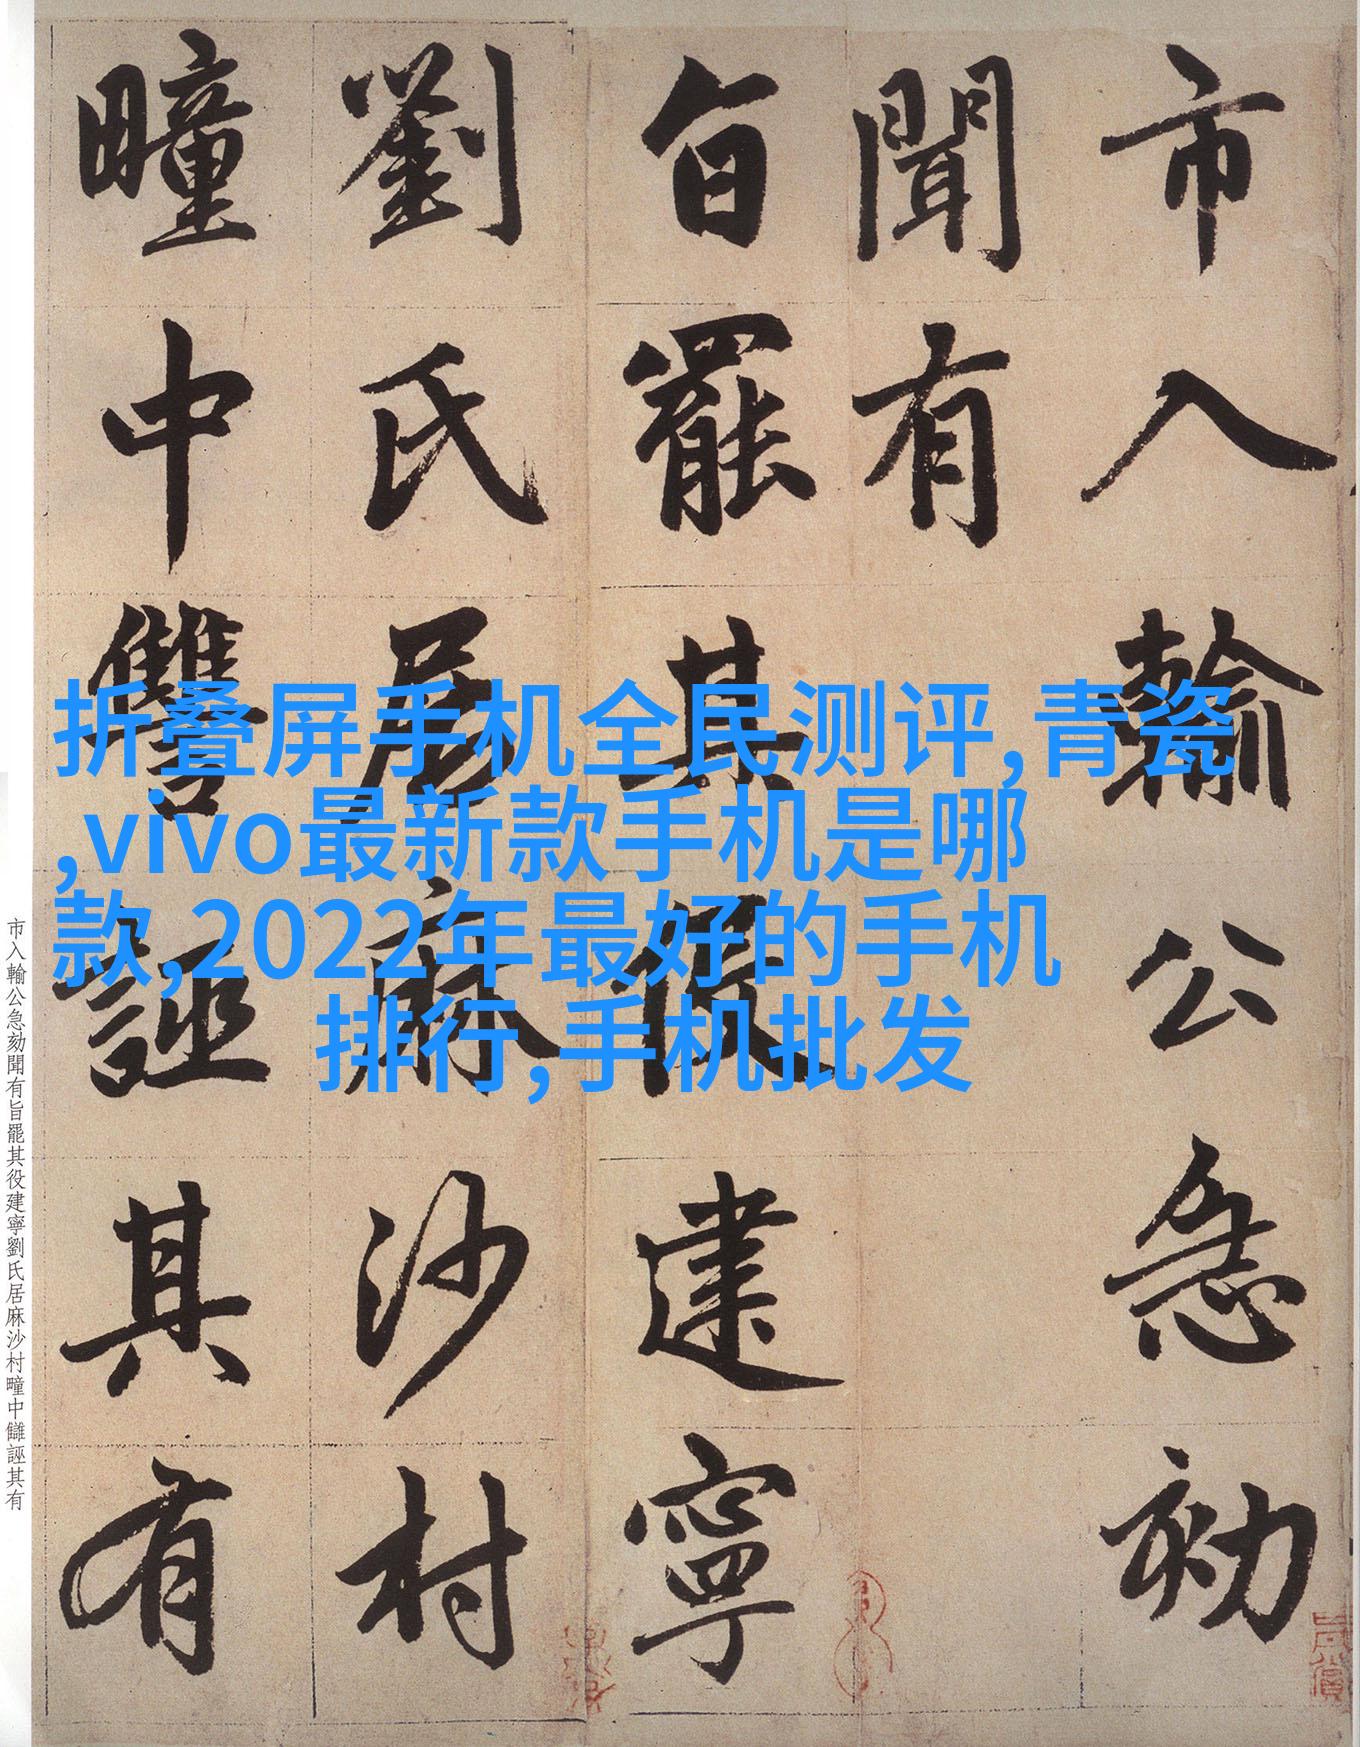 市入輸公急劾
聞有
旨罷其役建寧
劉氏居麻沙村
疃中讎誣其有
折叠屏手机全民测评,青瓷
,vivo最新款手机是哪
款,2022年最好的手机
排行,手机批发
市入輸公急劾聞有旨罷其役建寧劉氏居麻沙村疃中讎誣其有